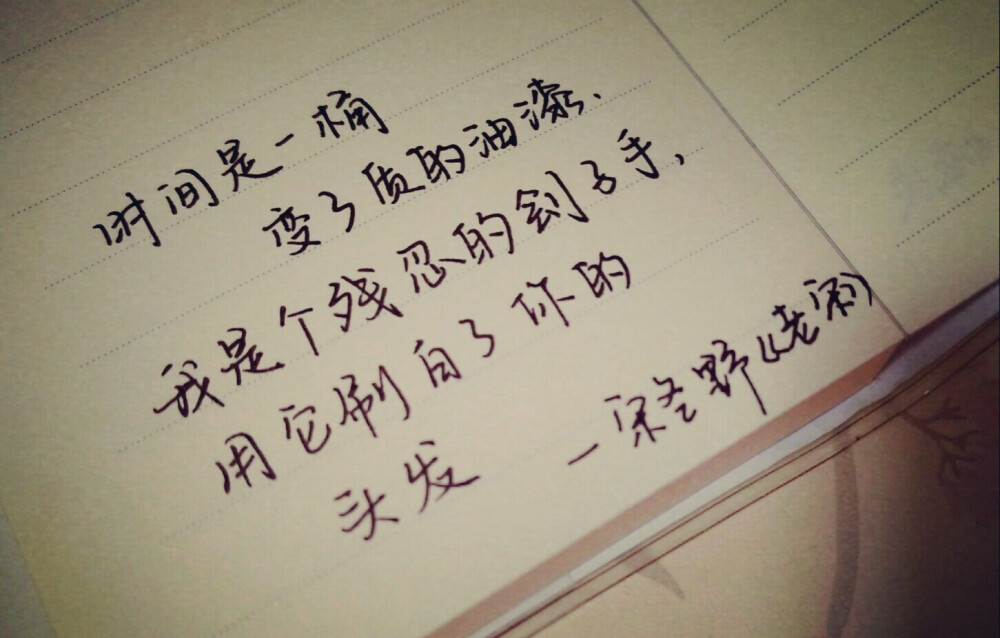 时间是一桶
变了质的油漆、
我是个残忍的刽子手，
用它刷白了你的
头发 —宋冬野《老